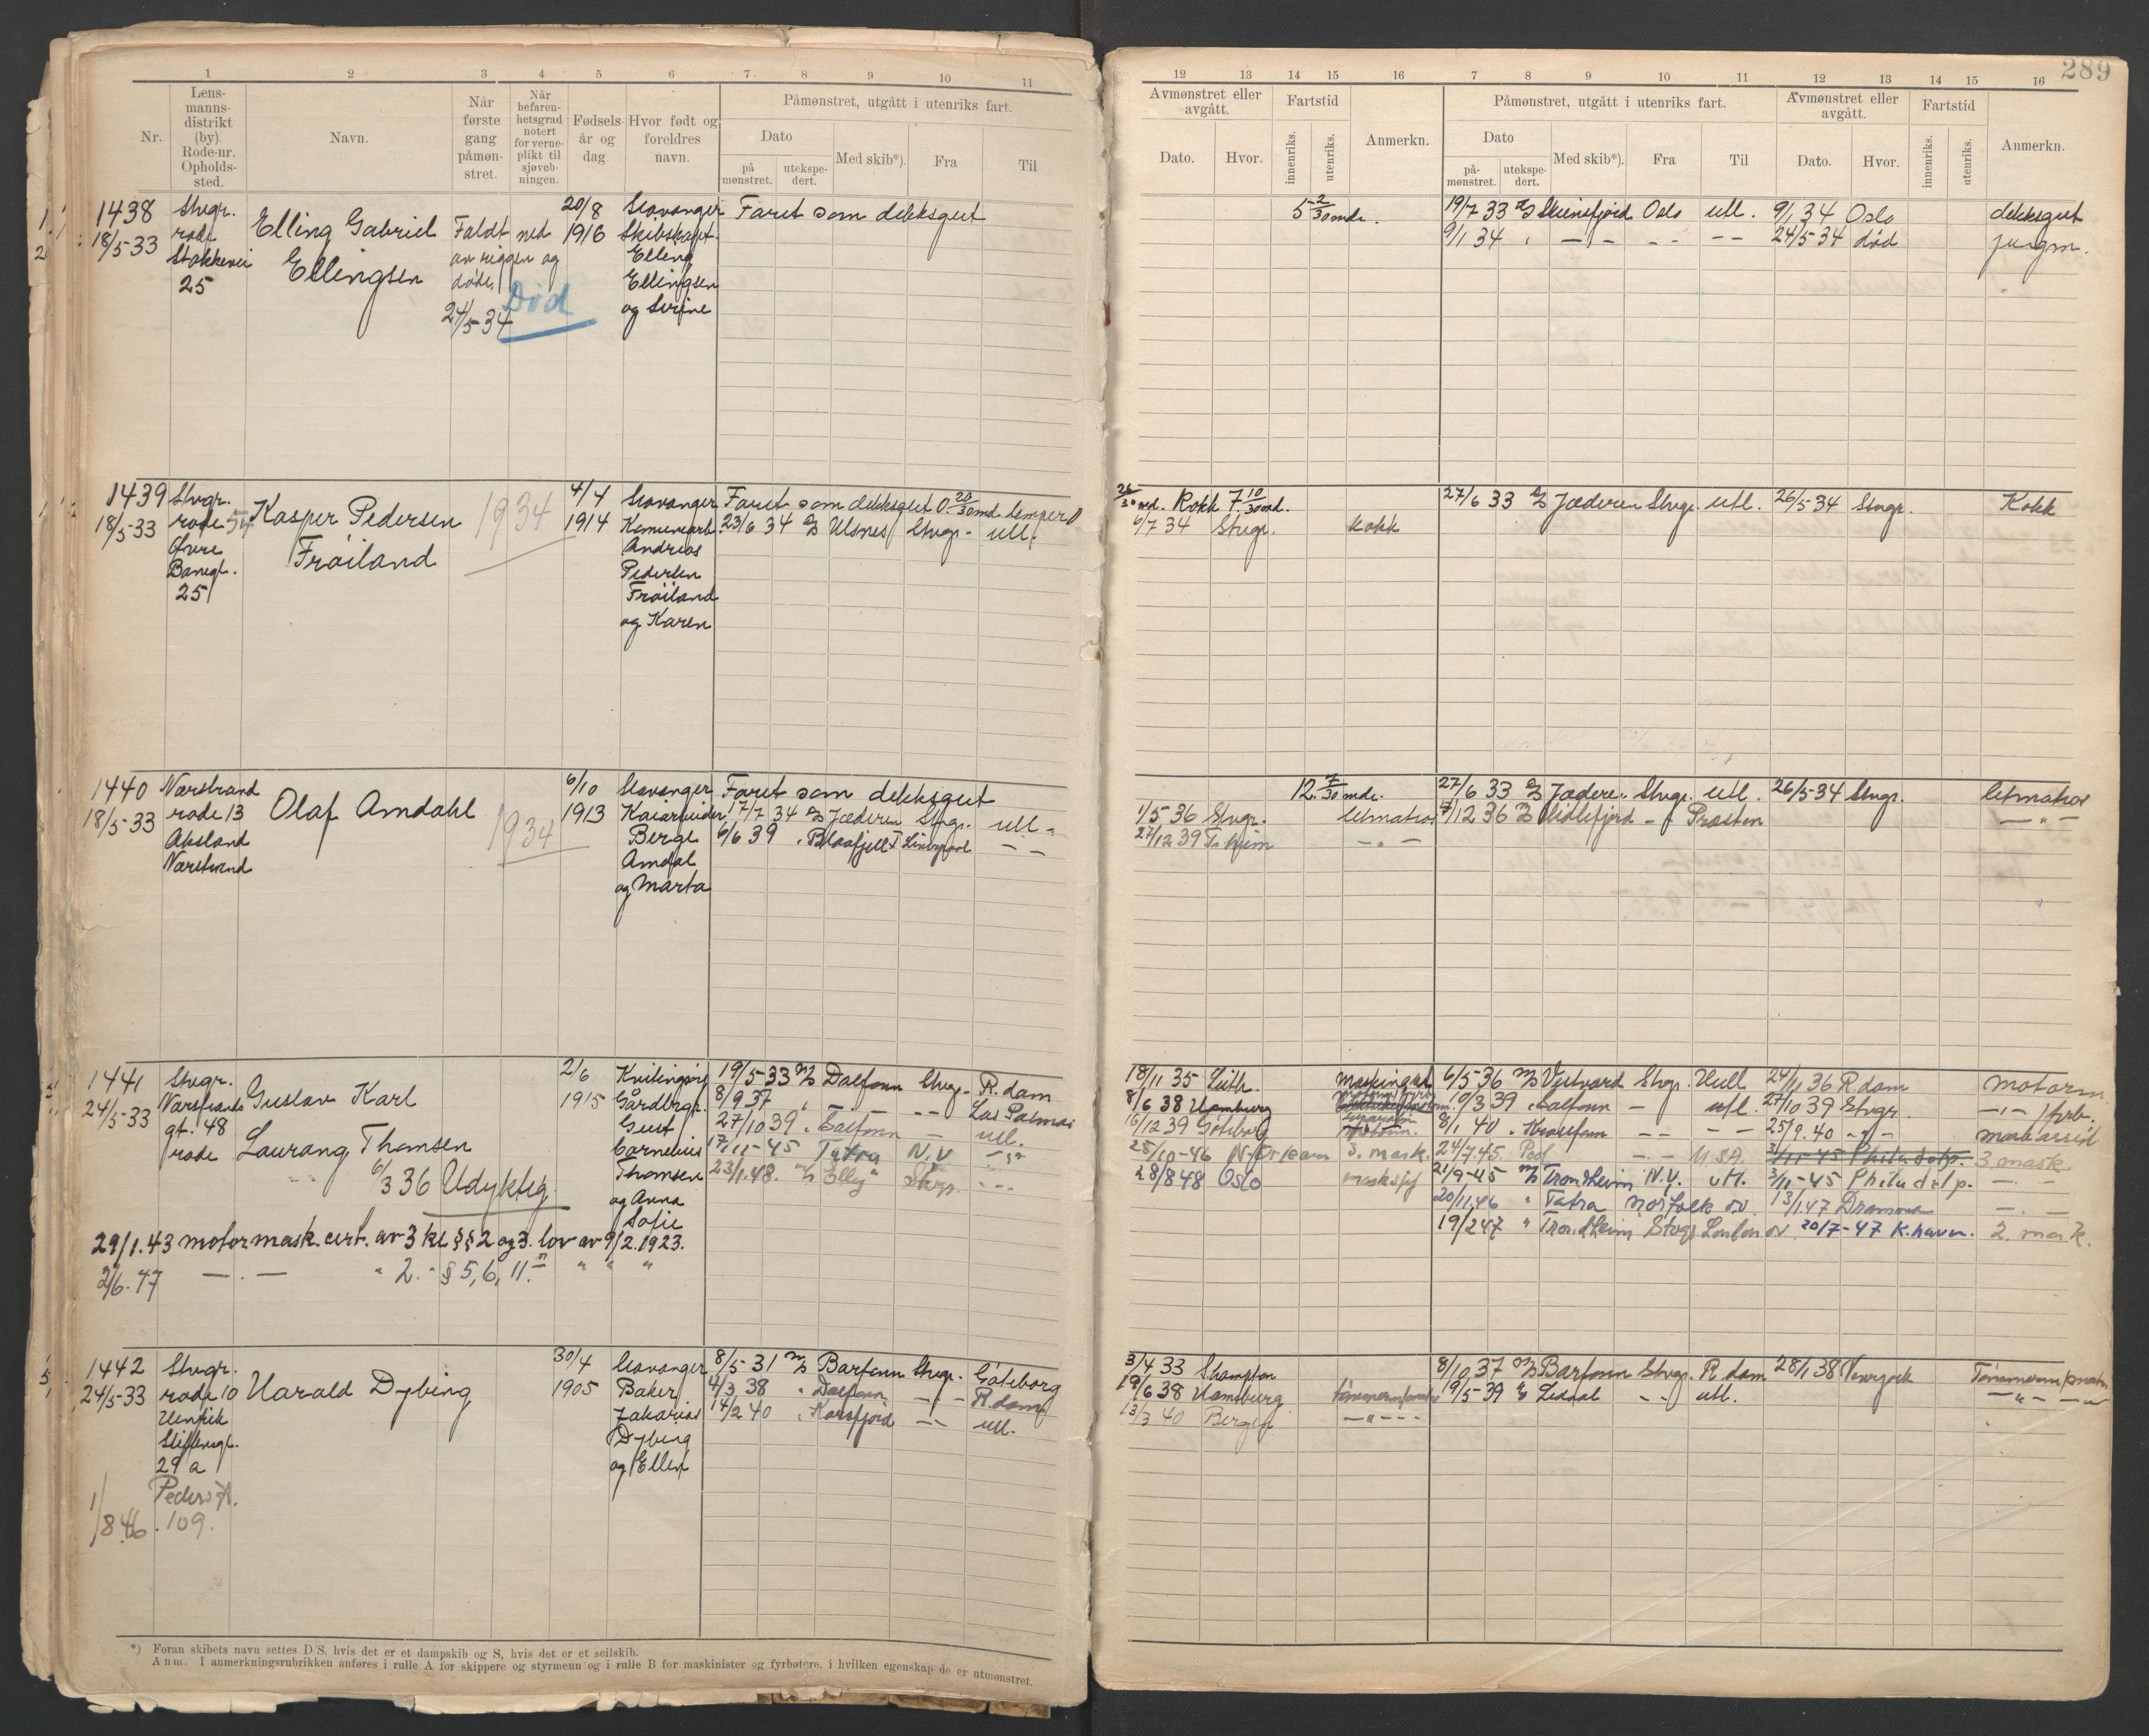 289
1 2 3 4 5 6 7 8 9 10 11
Nr.
Lens-
manns-
distrikt
(by).
Rode-nr.
Opholds-
sted.
Navn.
Når
første
gang
påmøn-
stret.
Når
befaren-
hetsgrad
notert
for verne-
plikt til
sjøveb-
ningen.
Fødsels-
år og
dag.
Hvor født og
foreldres
navn.
Påmønstret, utgått i utenriks fart.
Dato
på
mønstret.
utekspe-
dert.
Med skib*).
Fra
Til
12 13 14 15 16 7 8 9 10 11 12 13 14 15 16
Avmønstret eller
avgått.
Dato. Hvor.
Fartstid
innenriks. utenriks.
Anmerkn.
Påmønstret, utgått i utenriks fart.
Dato
på-
mønstret.
utekspe-
dert.
Med skib*). Fra Til
Avmønstret eller
avgått.
Dato. Hvor.
Fartstid
innenriks. utenriks.
Anmerkn.
1438
18/5-33
Stvgr.
rode
Stokkevei
25
Elling Gabriel
Ellingsen
Faldt ned
av riggen og
døde
24/5-34
Død
20/8
1916
Stavanger
Skibskapt.
Elling
Ellingsen
og Sirine
Faret som dekksgut
5 2/30 mdr.
19/7 33 Skiensfjord Oslo utl. 9/1 34 Oslo dekksgut
9/1 34 " — — -- -- 24/5-34 død jungm.
1439
18/5-33
Stvgr.
rode 54
Øvre
Banegt.
25
Kasper Pedersen
Frøiland
1934
4/4
1914
Stavanger
Kemunearb.
Andreas
Pedersen
Frøiland
og Karen
Faret som dekksgut 0. 20/30 md.
23/6 34 D/S Ulsnes Stvgr. - utl.
26/30 md. Kokk 7 10/30 md.
6/7 34 Stvgr. Kokk
27/6 33 D/S Jæderen Stvgr. utl. 26/5-34 Stvgr. Kokk
1440
18/5-33
Nærstrand
rode 13
Aksland
Nærstrand
Olaf Amdahl
1934
6/10
1913
Stavanger
Kaiarbeider
Berge
Amdal
og Marta
Faret som dekksgut
17/7 34 D/S Jæderen Stvgr. utl.
6/6 39 " Blaafjell I — —
12. 7/30 mdr.
1/5 36 Stvgr. letmatros
27/12 39 T.heim — " —
27/6 33 D/S Jæderen Stvgr. utl. 26/5-34 Stvgr. letmatros
7/12 36 Lidlefjord — Præsten — " —
1441
24/5-33
Stvgr.
Nærstrands
gt. 48
rode
Gustav Karl
Laurang Thomsen
6/3 36 Udyktig
2/6
1915
Kvitingsøy
Gårdbrgr.
Gust
Cornelius
Thomsen
og Anna
Sofie
29/1.43 motormask. cert. av 3 kl §§ 2 og 3. lov av 9/2.1923.
2/6.47 — . — " 2. " § 5, 6, 11. " " "
19/5-33 M/S Dalfonn Stvgr. R.dam
8/9 37 " — - — -- Las Palmas
27/10 39 " Talfonn — utl.
17/11-45 Tatra N.Y. — " —
23/1.48. M/S "Elly" Stvgr. - - -
18/11 35 Leith.
8/6 38 Hamburg
16/12 39 Göteborg
25/10-46 3. mask.
28/8 48 Oslo
6/5-36 M/S Vestvard Stvgr. Hull 24/11 36 R.dam motorm.
10/3 39 " Talfonn — utl. 27/10 39 Stvgr. — " —
8/1 40 " — — — 25/9.40 — " — mask assist
24/7.45. — . — U.S.A. 3/11-45 Philadelp. 3 mask
21/9-45 M/S Trondheim N.Y. utl. 3/11-45 Philadelp. — . —
20/11.46 " Tatra Norfolk ov. 13/1.47 Drammen — . —
19/2 47 " Trondheim Stvgr London ov. 20/7-47 K.havn. 2. mask.
1442
24/5-33
Stvgr.
rode 10
Henrik
Steffensgt.
29 a
Peders gt.
1/8.46. 109.
Harald Dybing
30/4
1905
Stavanger
Baker
Zakarias
Dybing
og Ellen
8/5-31 M/S Barfonn Stvgr. Göteborg
4/3 38 " Dalfonn — " — R.dam
14/2 40 " Korsfjord — — utl.
3/4 33 S.hampton
19/6 38 Hamburg
13/3 40 Bergen — " — - -
8/10 37 M/S Barfonn Stvgr. R.dam 28/1 38 Newyork
19/5-39 D/S Lisdal - - utl. — " — - "
*) Foran skibets navn settes D/S, hvis det er et dampskib og S, hvis det er et seilskib.
Anm. I anmerkningsrubrikken anføres i rulle A for skippere og styrmenn og i rulle B for maskinister og fyrbøtere, i hvilken egenskap de er utmønstret.